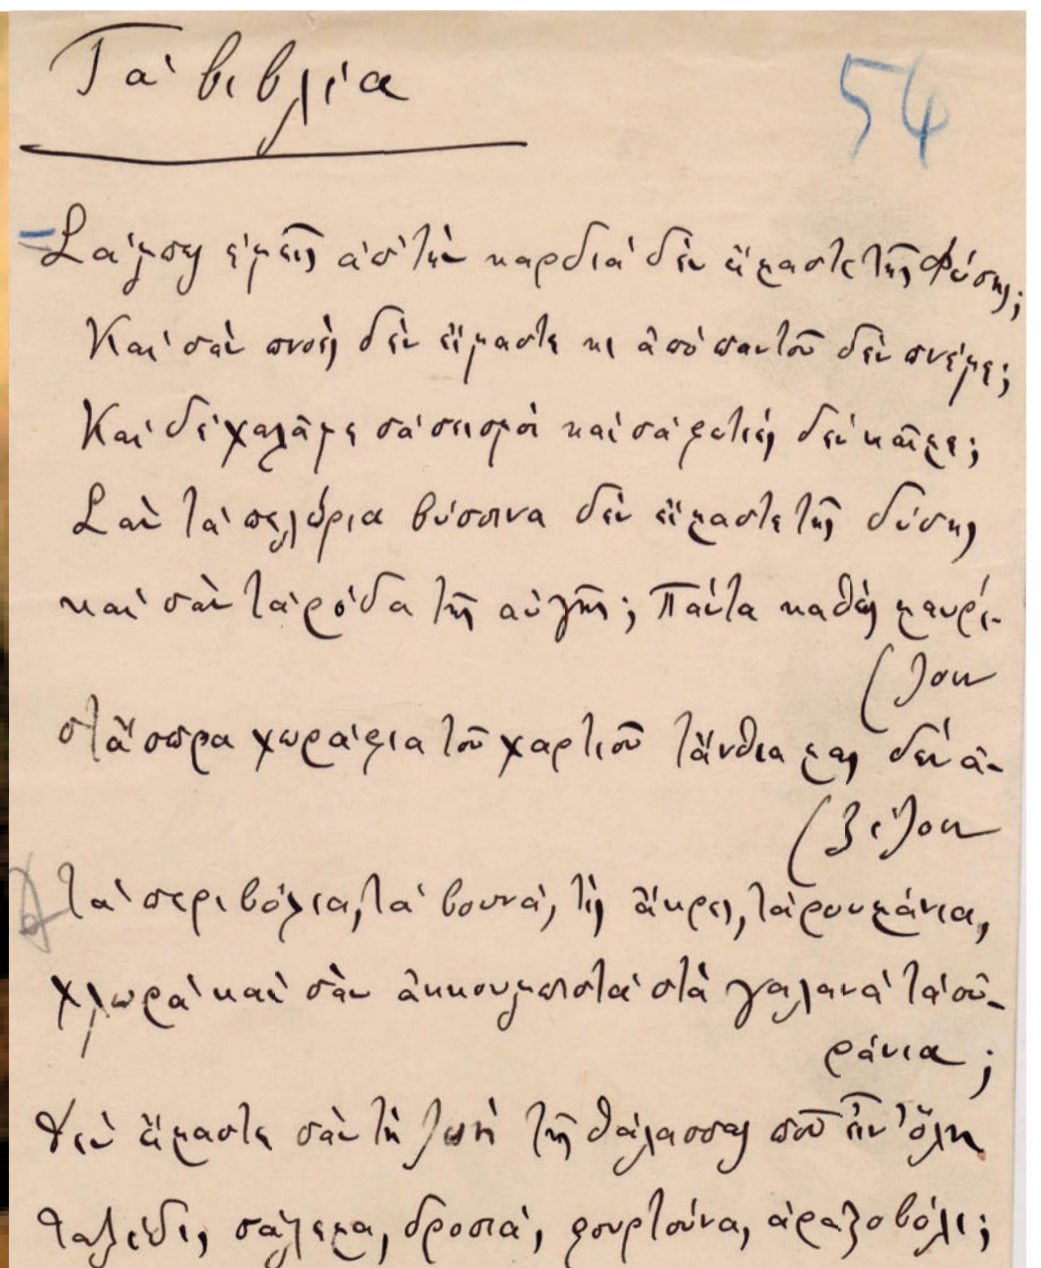 Τα' βιβλία
54
Σα'μπως ε'μεῖς ἀπ' τὴν καρδιὰ δὲν εἴμαστε τῆς Φύσης;
Καὶ σὰν πνοὲς δὲν εἴμαστε κι ἀπὸ παντοῦ δὲν πνέμε;
Καὶ δὲ χαλᾶμε σὰ σεισμοὶ καὶ σὰ φωτιὲς δὲν καῖμε;
Σὰν τὰ πελώρια βύσσινα δὲν εἴμαστε τῆς δύσης
καὶ σὰν τὰ ρόδα τῆς αὐγῆς; Πάντα καθὼς μαυρί-
(ζουν
στἄσπρα χωράφια τοῦ χαρτιοῦ τἄνθια μας δὲν ἀ-
(ξίζουν
τὰ περιβόλια, τὰ βουνά, τὶς ἄκρες, τὰ ρουμάνια,
χλωρὰ καὶ σὰν ἀκκουμπιστὰ στὰ γαλανὰ τὰ οὐ-
ράνια;
Δὲν εἴμαστε σὰν τὴ ζωὴ τῆς θάλασσας ποῦ εἶν' ὅλη
ταξίδι, σάλεμα, δροσιά, φουρτούνα, ἀραξοβόλι;